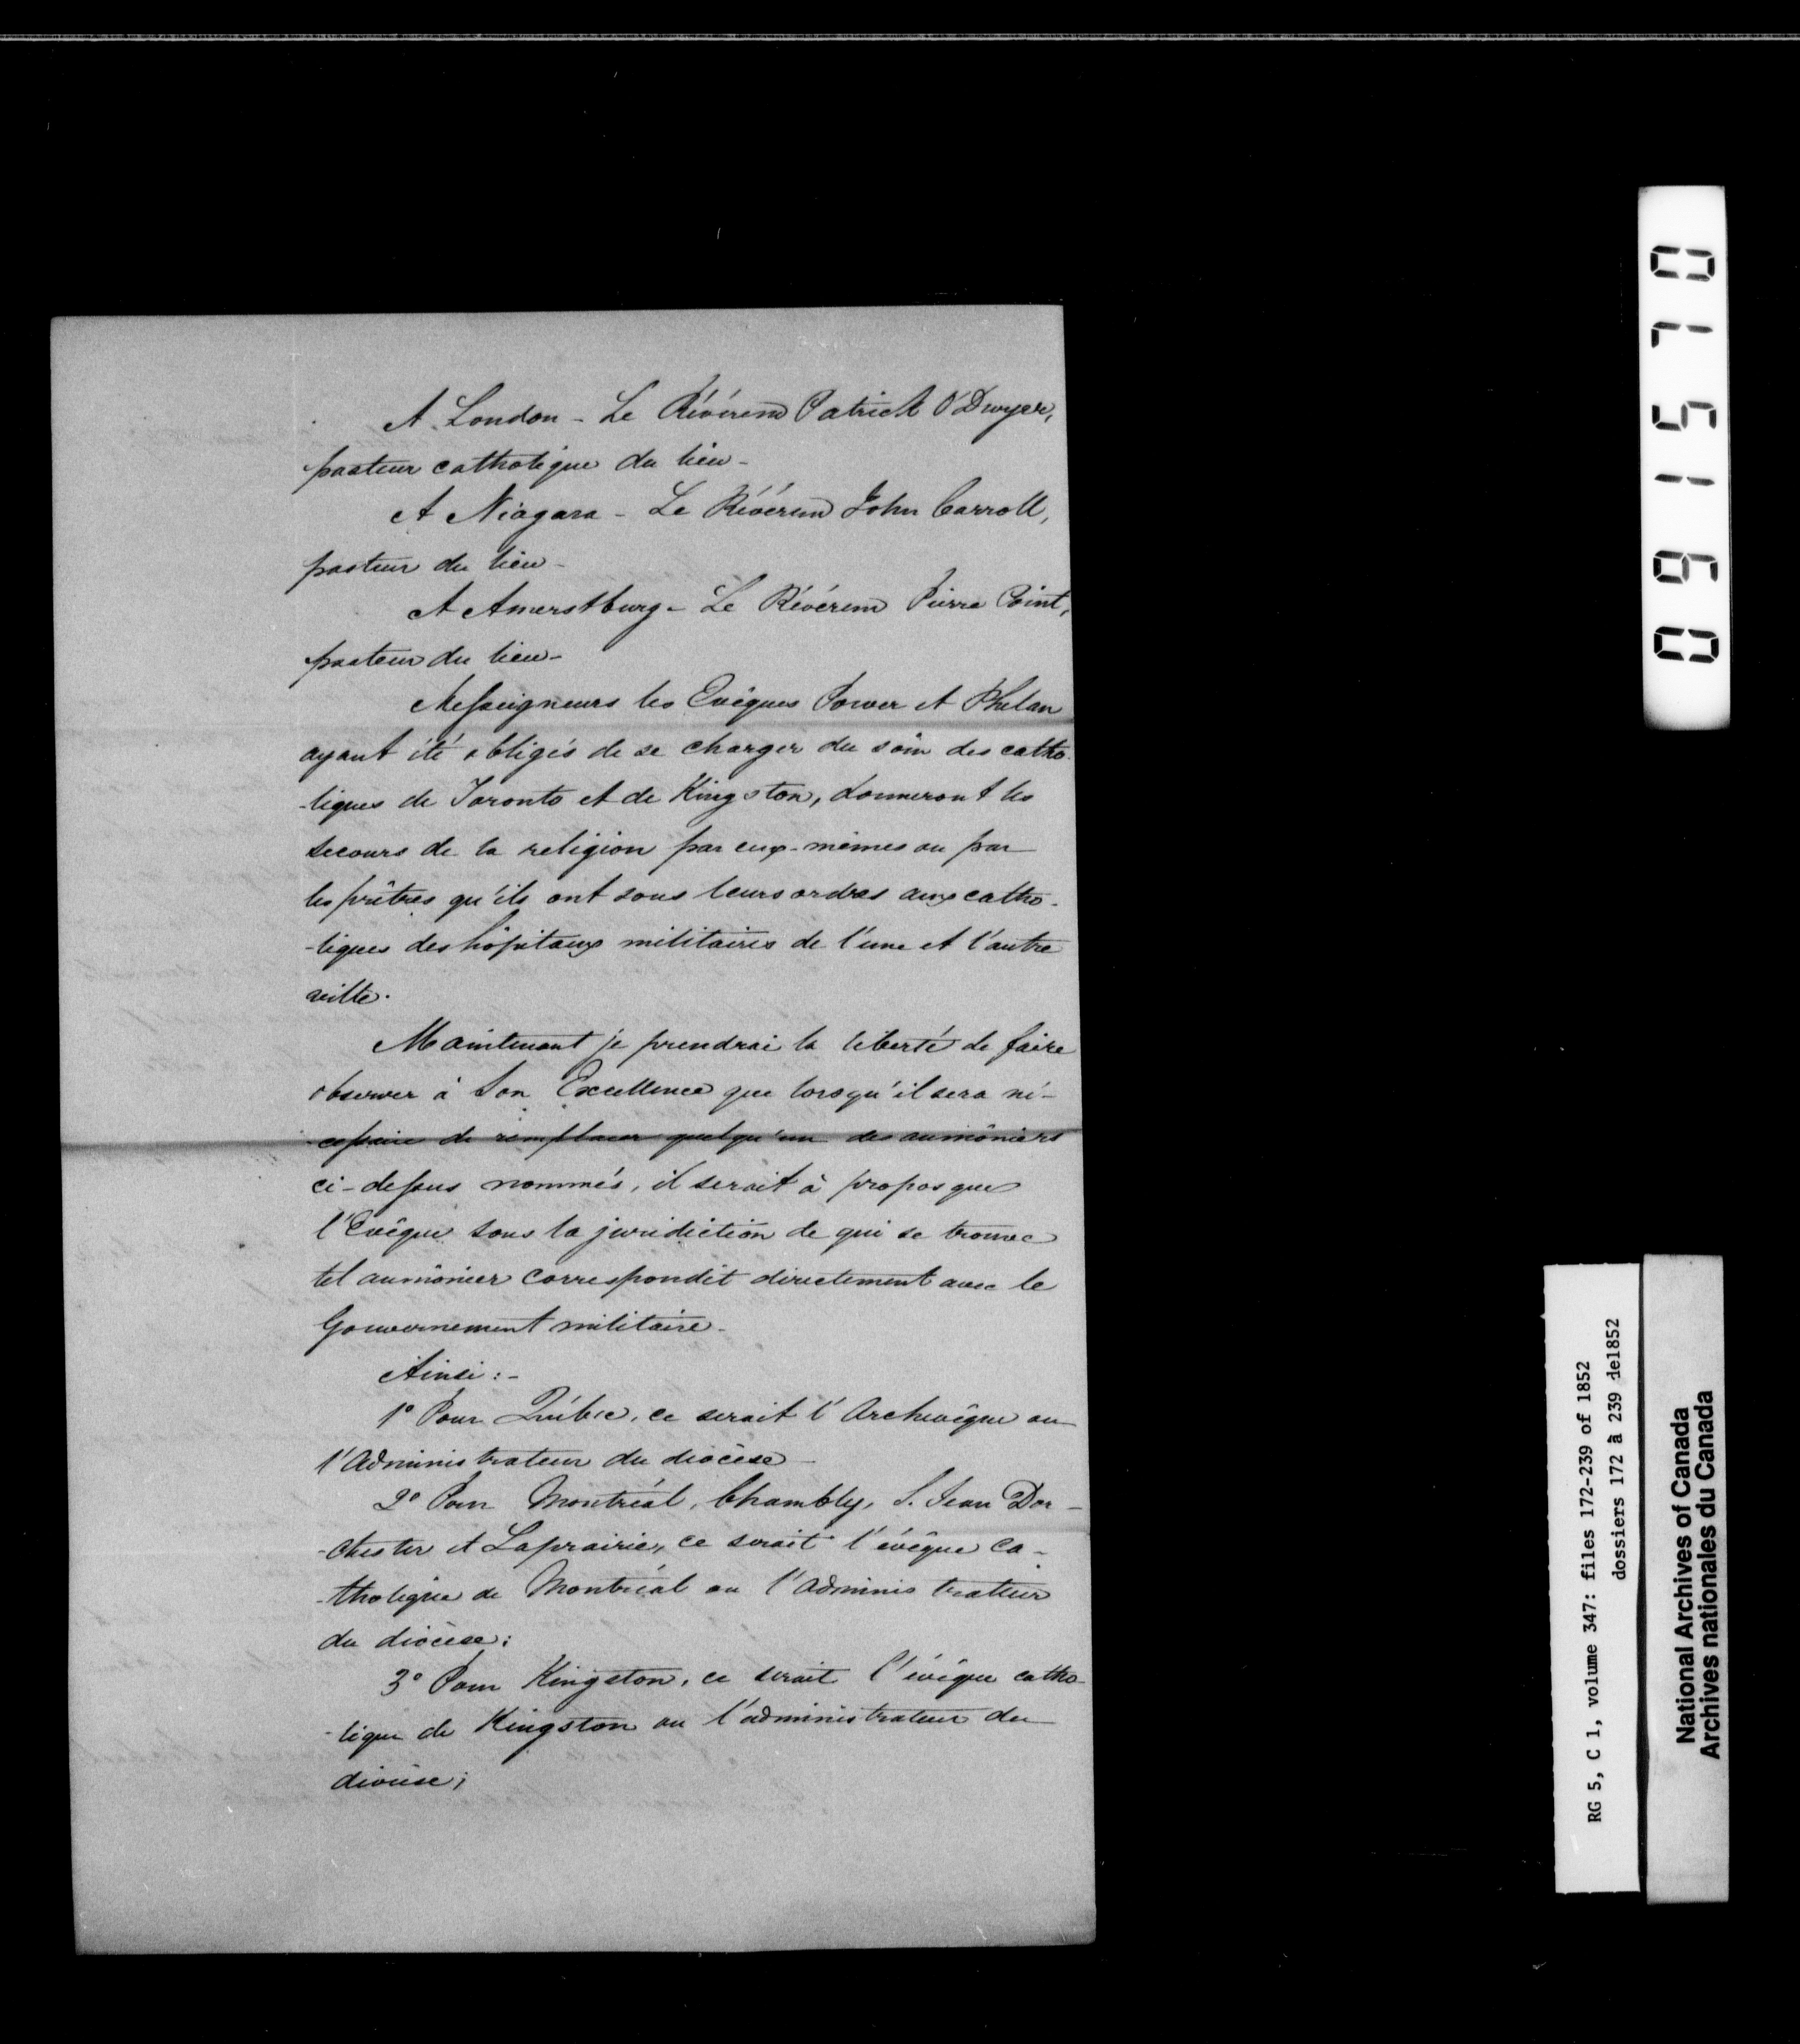 A London - Le Révérend Patrick O'Dwyer,
pasteur catholique du lieu -
A Niagara - Le Révérend John Carroll,
pasteur du lieu -
A Amerstburg - Le Révérend Pierre Point,
pasteur du lieu -
Messeigneurs les Evêques Power et Phelan
ayant été obligés de se charger du soin des catho-
-liques de Toronto et de Kingston, donneront les
secours de la religion par eux-mêmes ou par
les prêtres qu'ils ont sous leurs ordres aux catho-
-liques des hôpitaux militaires de l'une et l'autre
ville.
Maintenant je prendrai la liberté de faire
observer à Son Excellence que lorsqu'il sera né-
-cessaire de remplacer quelqu'un des aumôniers
ci-dessus nommés, il serait à propos que
l'Evêque sous la juridiction de qui se trouve
tel aumônier correspondit directement avec le
Gouvernement militaire -
Ainsi :-
1° Pour Québec, ce serait l'Archevêque ou
l'Administrateur du diocèse -
2° Pour Montréal, Chambly, S. Jean Dor-
-chester et Laprairie, ce serait l'évêque ca-
-tholique de Montréal ou l'Administrateur
du diocèse;
3° Pour Kingston, ce serait l'évêque catho-
-lique de Kingston ou l'administrateur du
diocèse;
091570
RG 5, C 1, volume 347: files 172-239 of 1852
dossiers 172 à 239 de1852
National Archives of Canada
Archives nationales du Canada